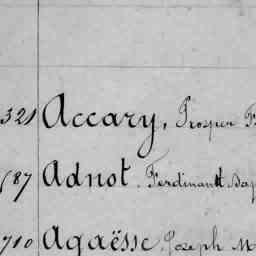 321 Accary, Prosper F
687 Adnot, Ferdinand Bap
710 Agaësse, Joseph M